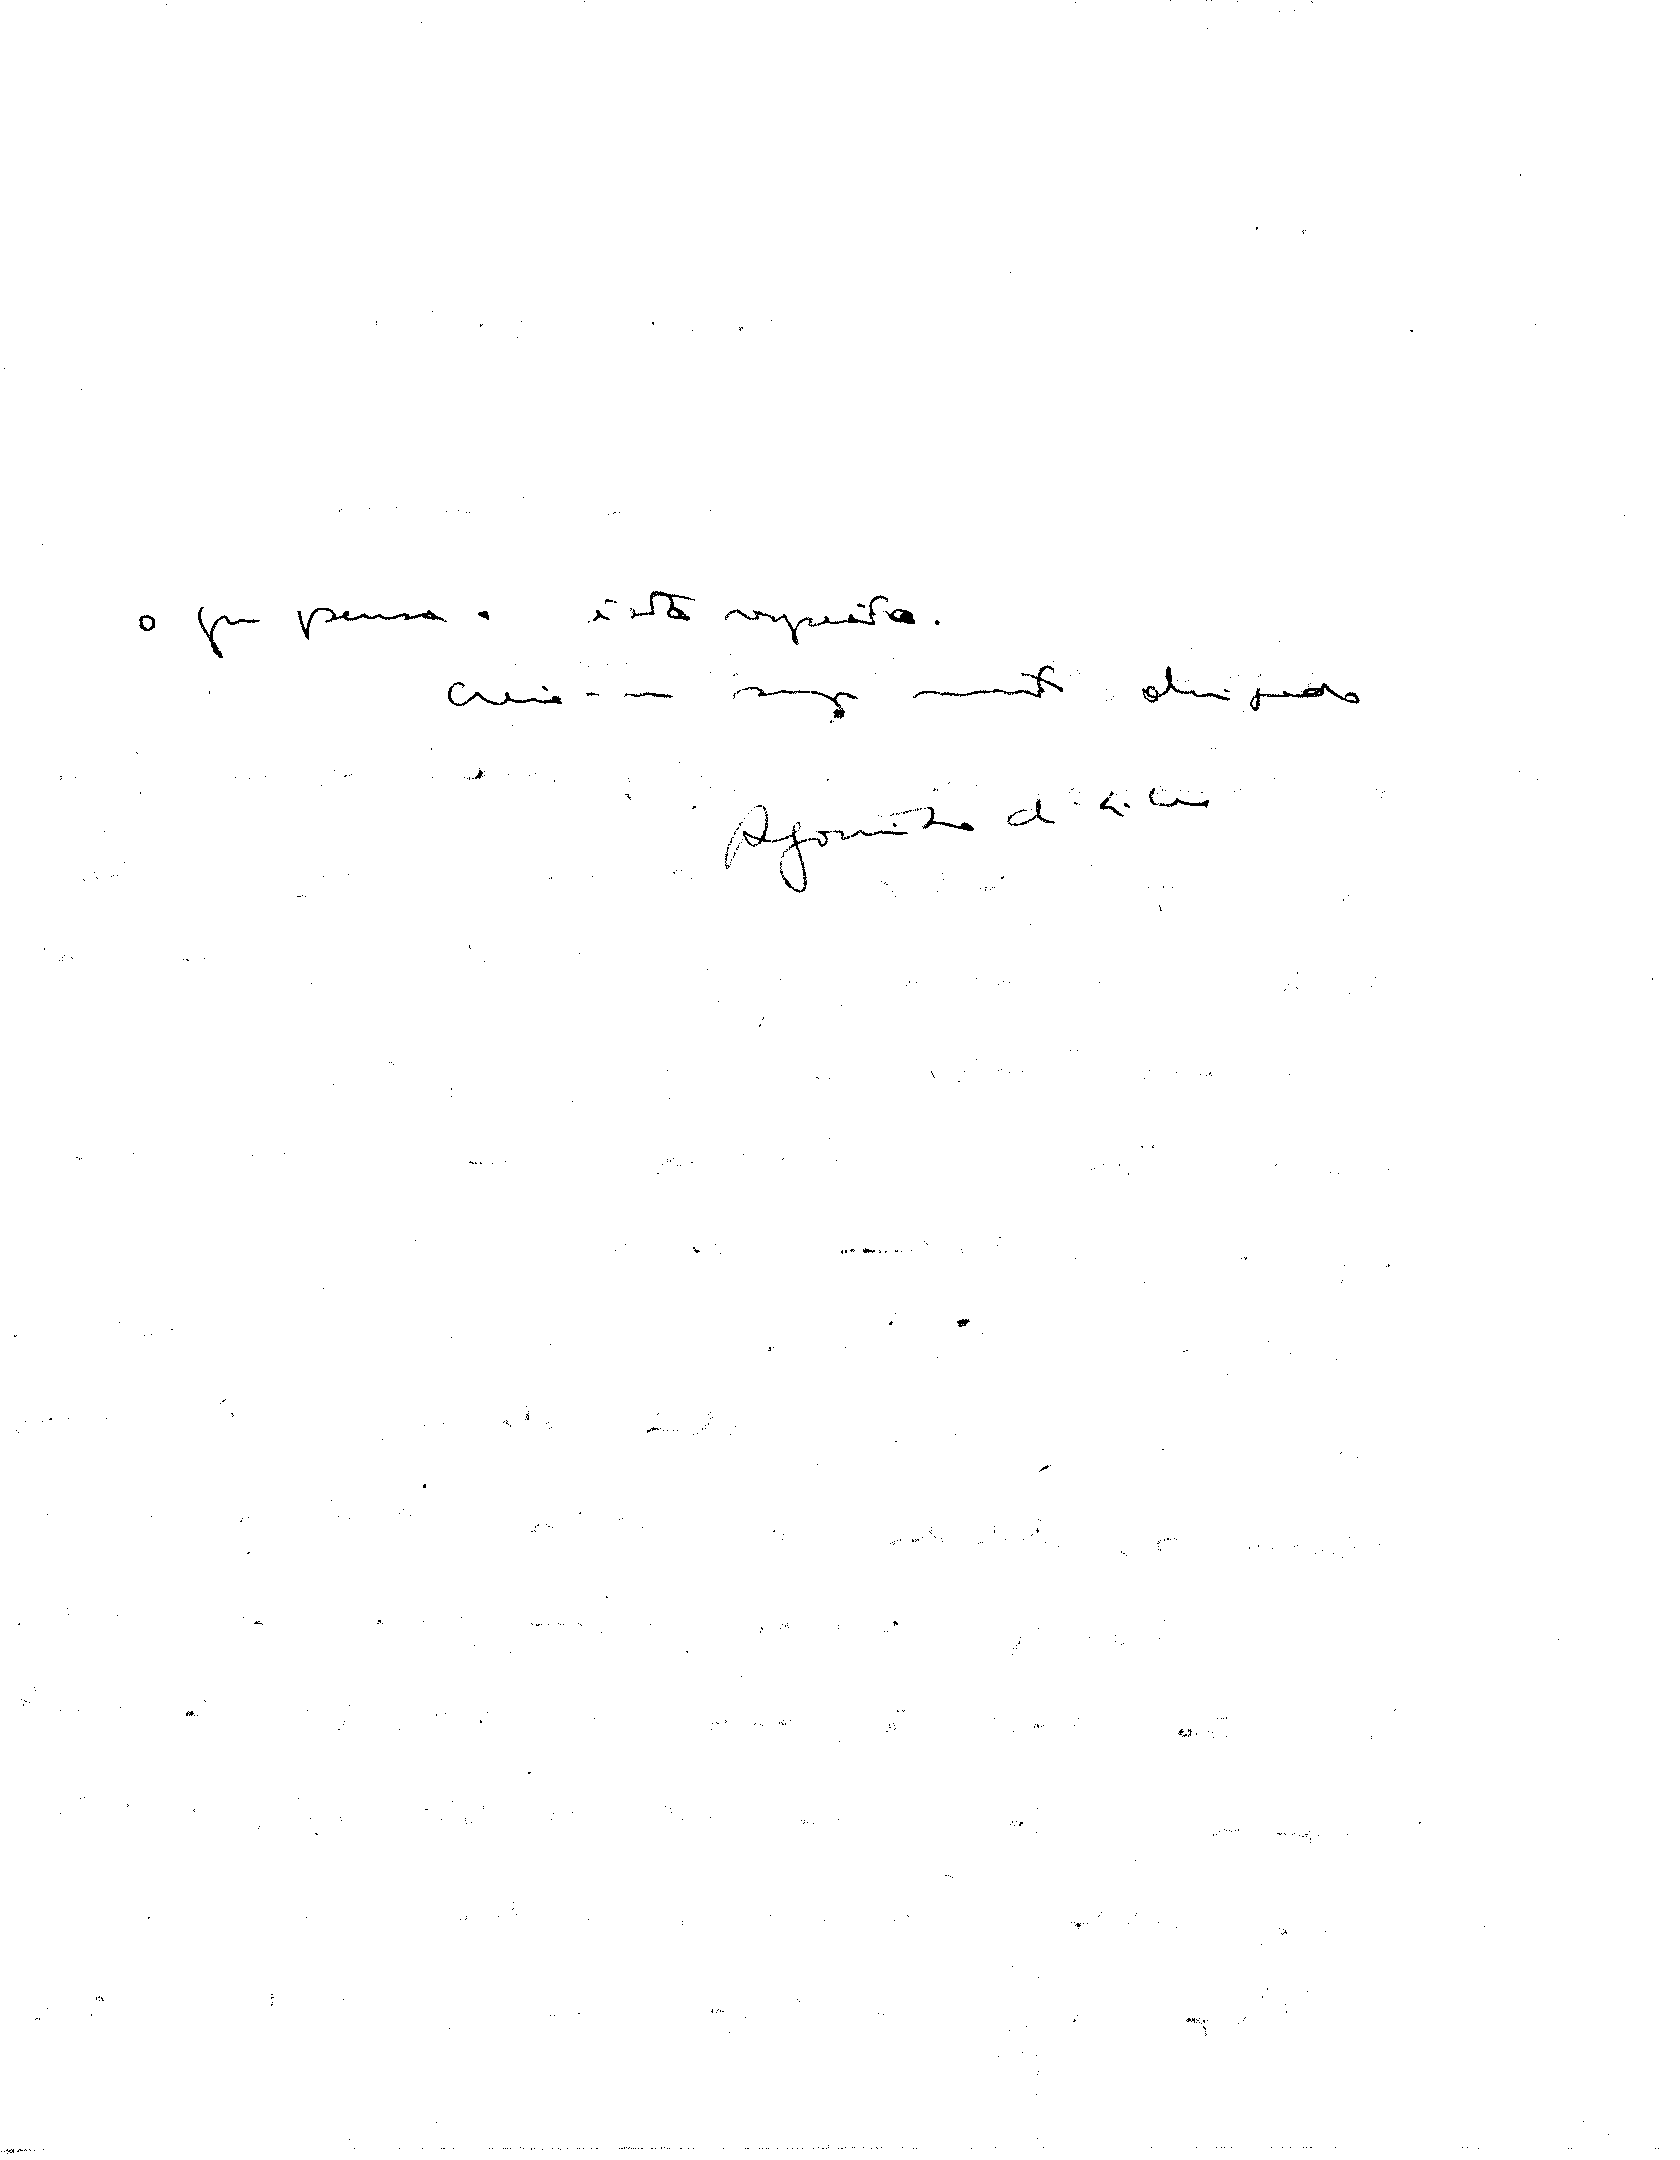 o que pensa a este respeito.
Creia-me sempre muito obrigado
Agostinho da Silva